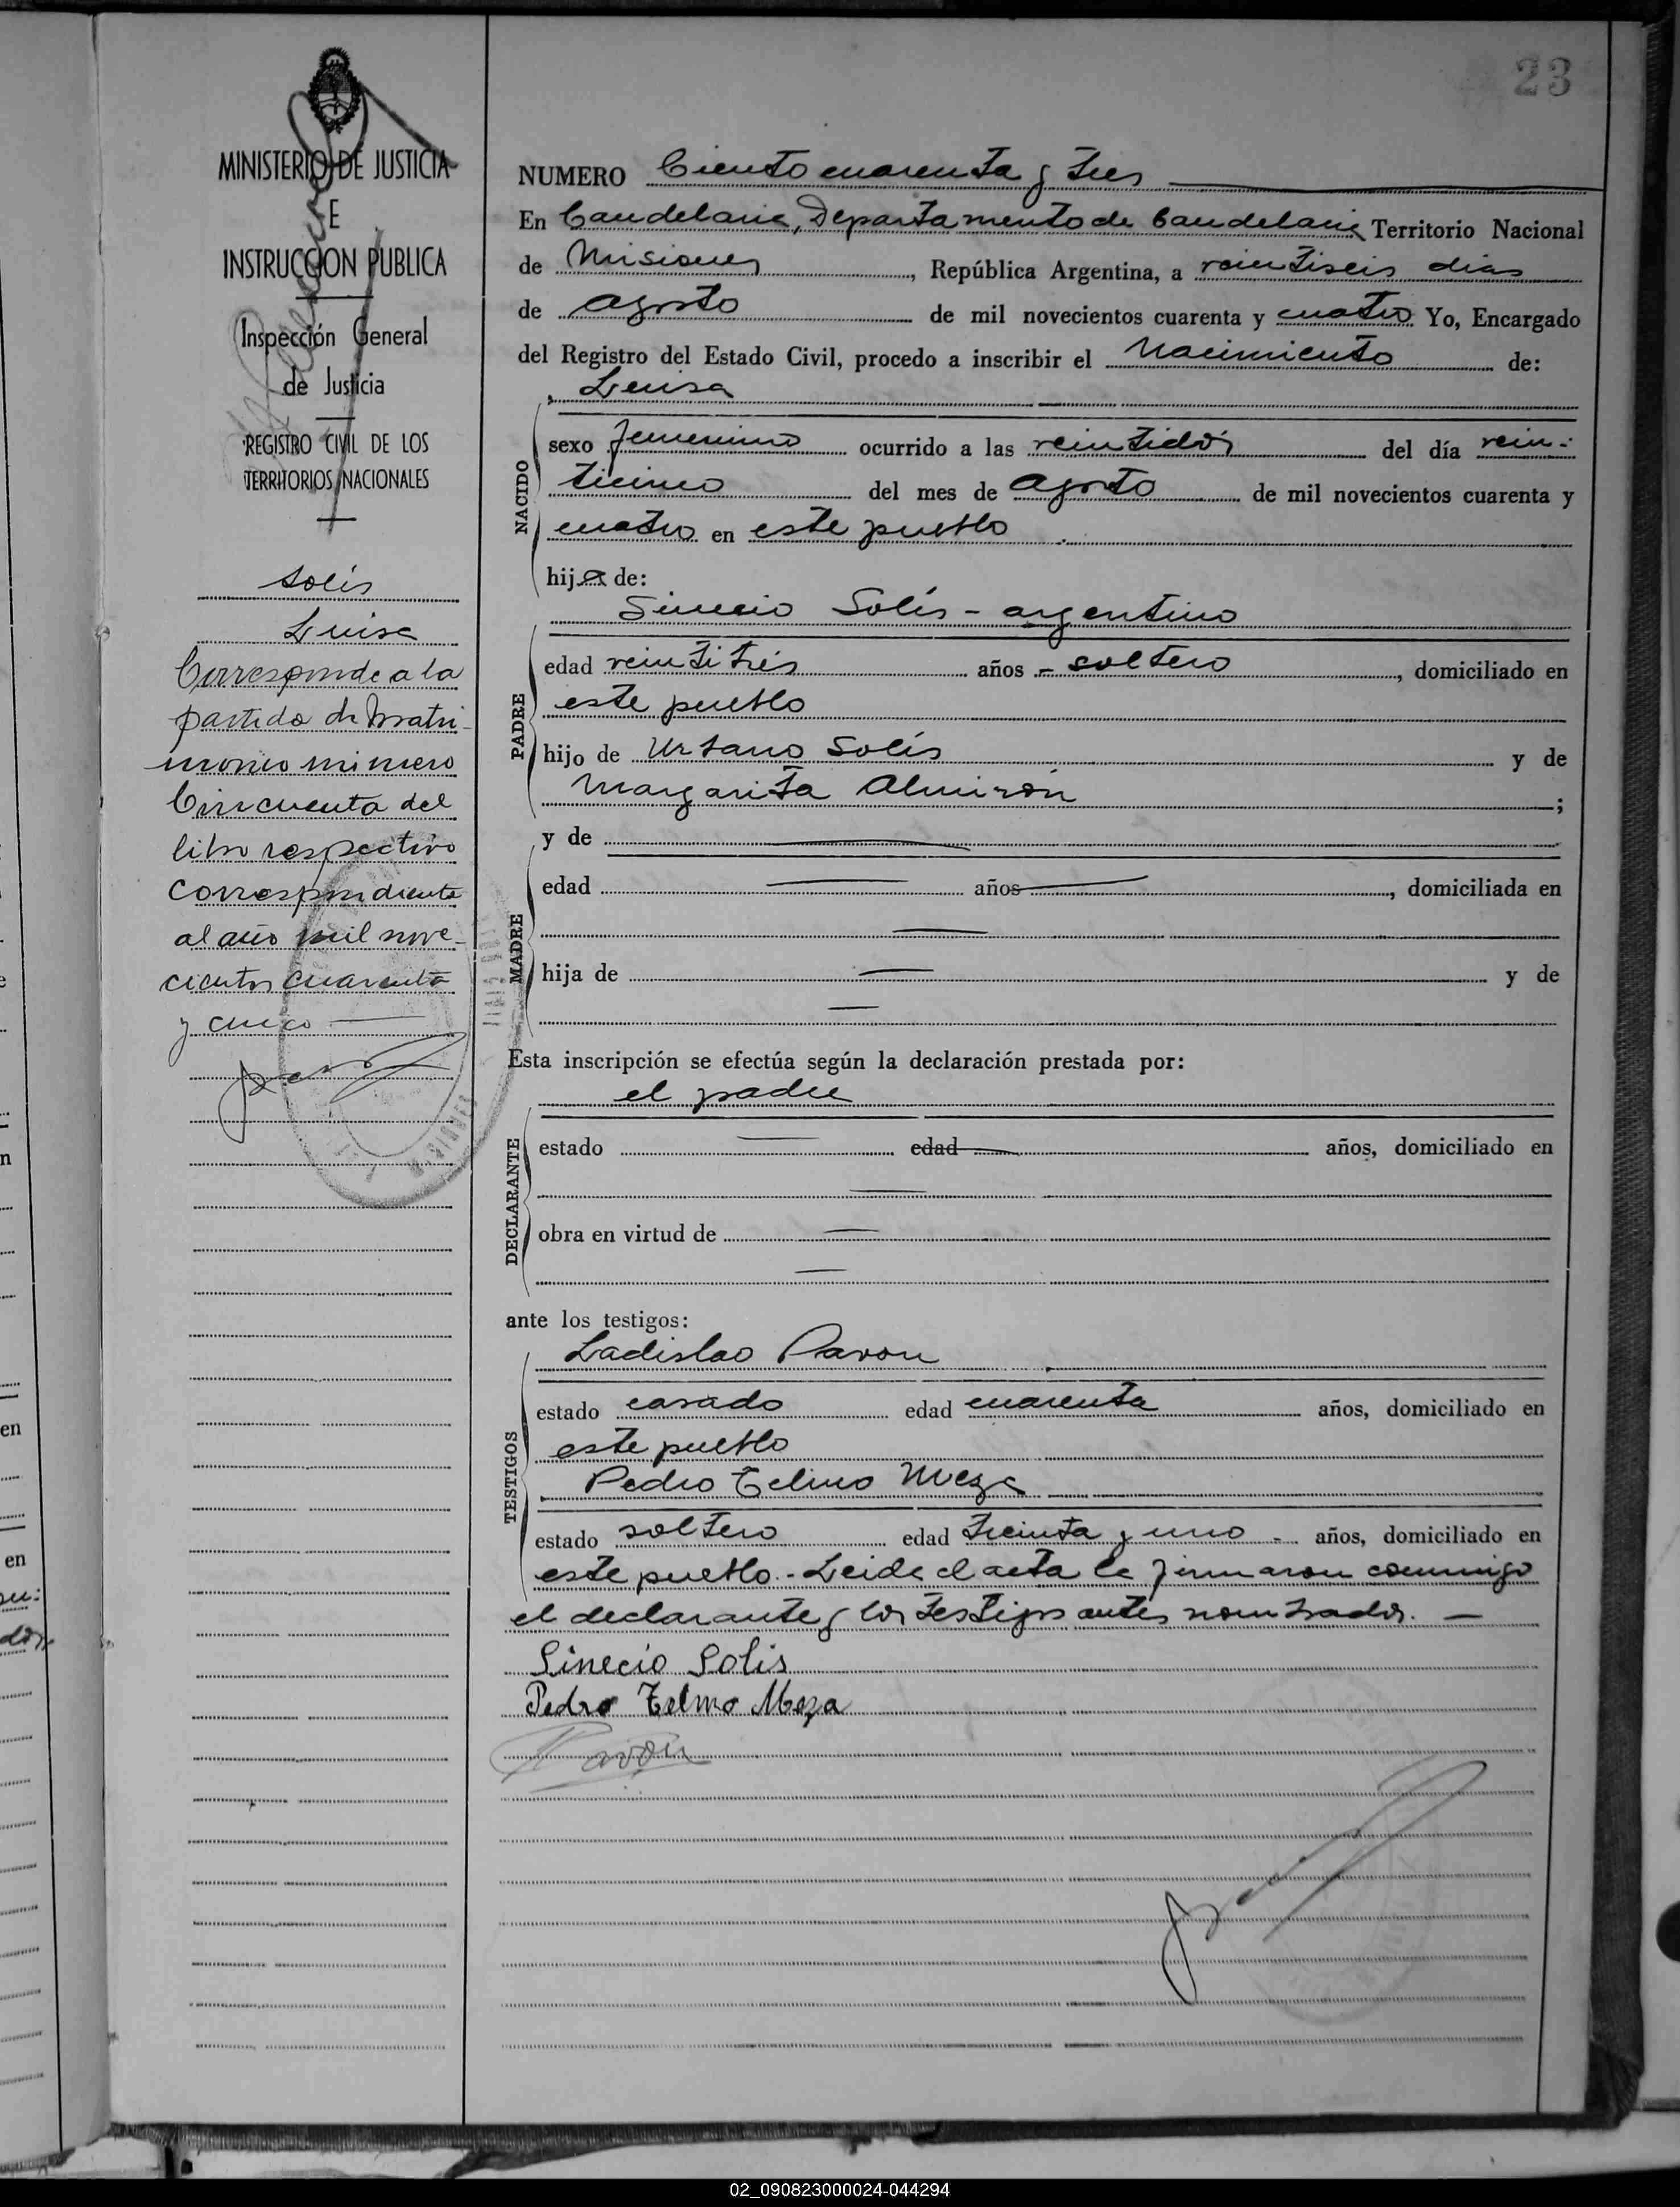 23
MINISTERIO DE JUSTICIA
E
INSTRUCCION PUBLICA
Inspección General
de Justicia
REGISTRO CIVIL DE LOS
TERRITORIOS NACIONALES
Solís
Luisa
Corresponde a la
partida de matri-
monio número
Cincuenta del
libro respectivo
correspondiente
al año mil nove-
cientos cuarenta
y cinco
NUMERO Ciento cuarenta y tres
En Candelaria, Departamento de Candelaria Territorio Nacional
de Misiones, República Argentina, a veintiseis dias
de agosto de mil novecientos cuarenta y cuatro Yo, Encargado
del Registro del Estado Civil, procedo a inscribir el Nacimiento de:
Luisa
NACIDO
sexo femenino ocurrido a las veintidós del día vein-
ticinco del mes de agosto de mil novecientos cuarenta y
cuatro en este pueblo
hija de:
Sinecio Solís - argentino
PADRE
edad veintitrés años - soltero, domiciliado en
este pueblo
hijo de Urbano Solís y de
Margarita Almirón;
MADRE
y de
edad años, domiciliada en
hija de y de
Esta inscripción se efectúa según la declaración prestada por:
el padre
DECLARANTE
estado edad años, domiciliado en
obra en virtud de
ante los testigos:
Ladislao Pavon
TESTIGOS
estado casado edad cuarenta años, domiciliado en
este pueblo
Pedro Telmo Meza
estado soltero edad treinta y uno - años, domiciliado en
este pueblo.- Leida el acta la firmaron conmigo
el declarante y los testigos antes nombrados. —
Sinecio Solis
Pedro Telmo Meza
Pavón
02_090823000024-044294